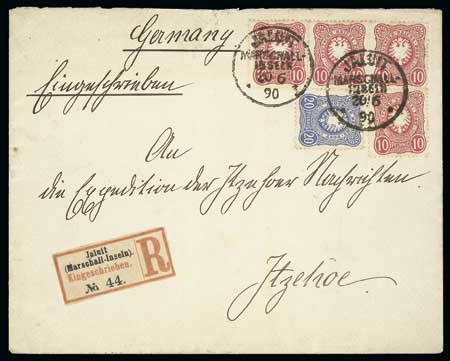 Germany
Eingeschrieben
JALUIT
MARSCHALL-
INSELN
20/6
90
JALUIT
MARSCHALL-
INSELN
20/6
90
10 10
10 10
10
20 20
10 10
An
die Expedition der Itzehoer Nachrichten.
Itzehoe.
Jaluit
(Marschall-Inseln).
Eingeschrieben.
№ 44.
R